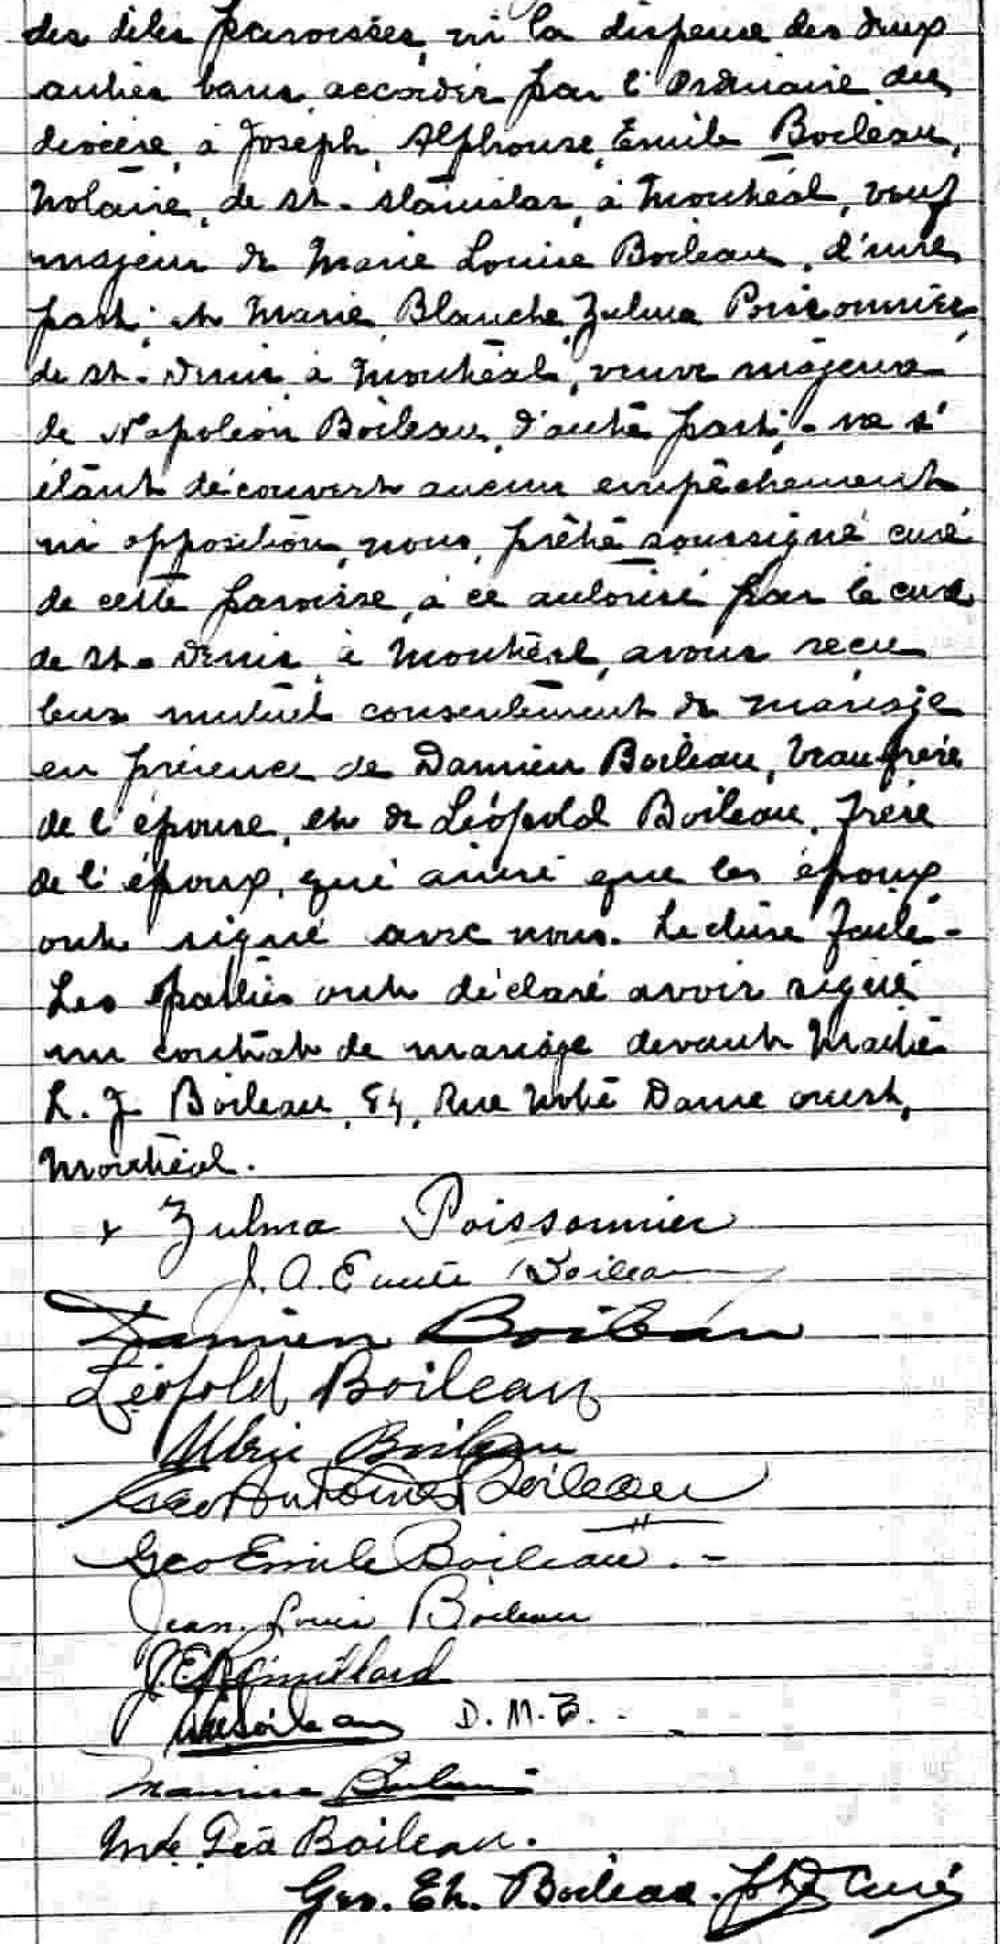 des dites paroisses, vu la dispense des deux
autres bans accordée par l'Ordinaire du
diocèse, à Joseph, Alphonse, Emile Boileau,
Notaire, de St. Stanislas, à Montréal, veuf
majeur de Marie Louise Boileau, d'une
part; et Marie Blanche Zulma Poissonnier,
de St. Denis à Montréal, veuve majeure
de Napoléon Boileau, d'autre part; ne s'
étant découvert aucun empêchement
ni opposition, nous, prêtre soussigné curé
de cette paroisse, à ce autorisé par le curé
de St. Denis, à Montréal, avons reçu
leur mutuel consentement de mariage
en présence de Damien Boileau, beau-frère
de l'épouse, et de Léopold Boileau, frère
de l'époux, qui ainsi que les époux
ont signé avec nous. Lecture faite.-
Les parties ont déclaré avoir signé
un contrat de mariage devant Maître
L. J. Boileau, 84, Rue Notre Dame ouest,
Montréal.
x Zulma Poissonnier
J. A. Emile Boileau
Damien Boileau
Léopold Boileau
Ulric Boileau
Geo Antoine Boileau
Geo Emile Boileau.-
Jean-Louis Boileau
Boileau D. M. B.
Maurice Boileau
Mde Léa Boileau.
Geo. Et. Boileau. Ptre Curé